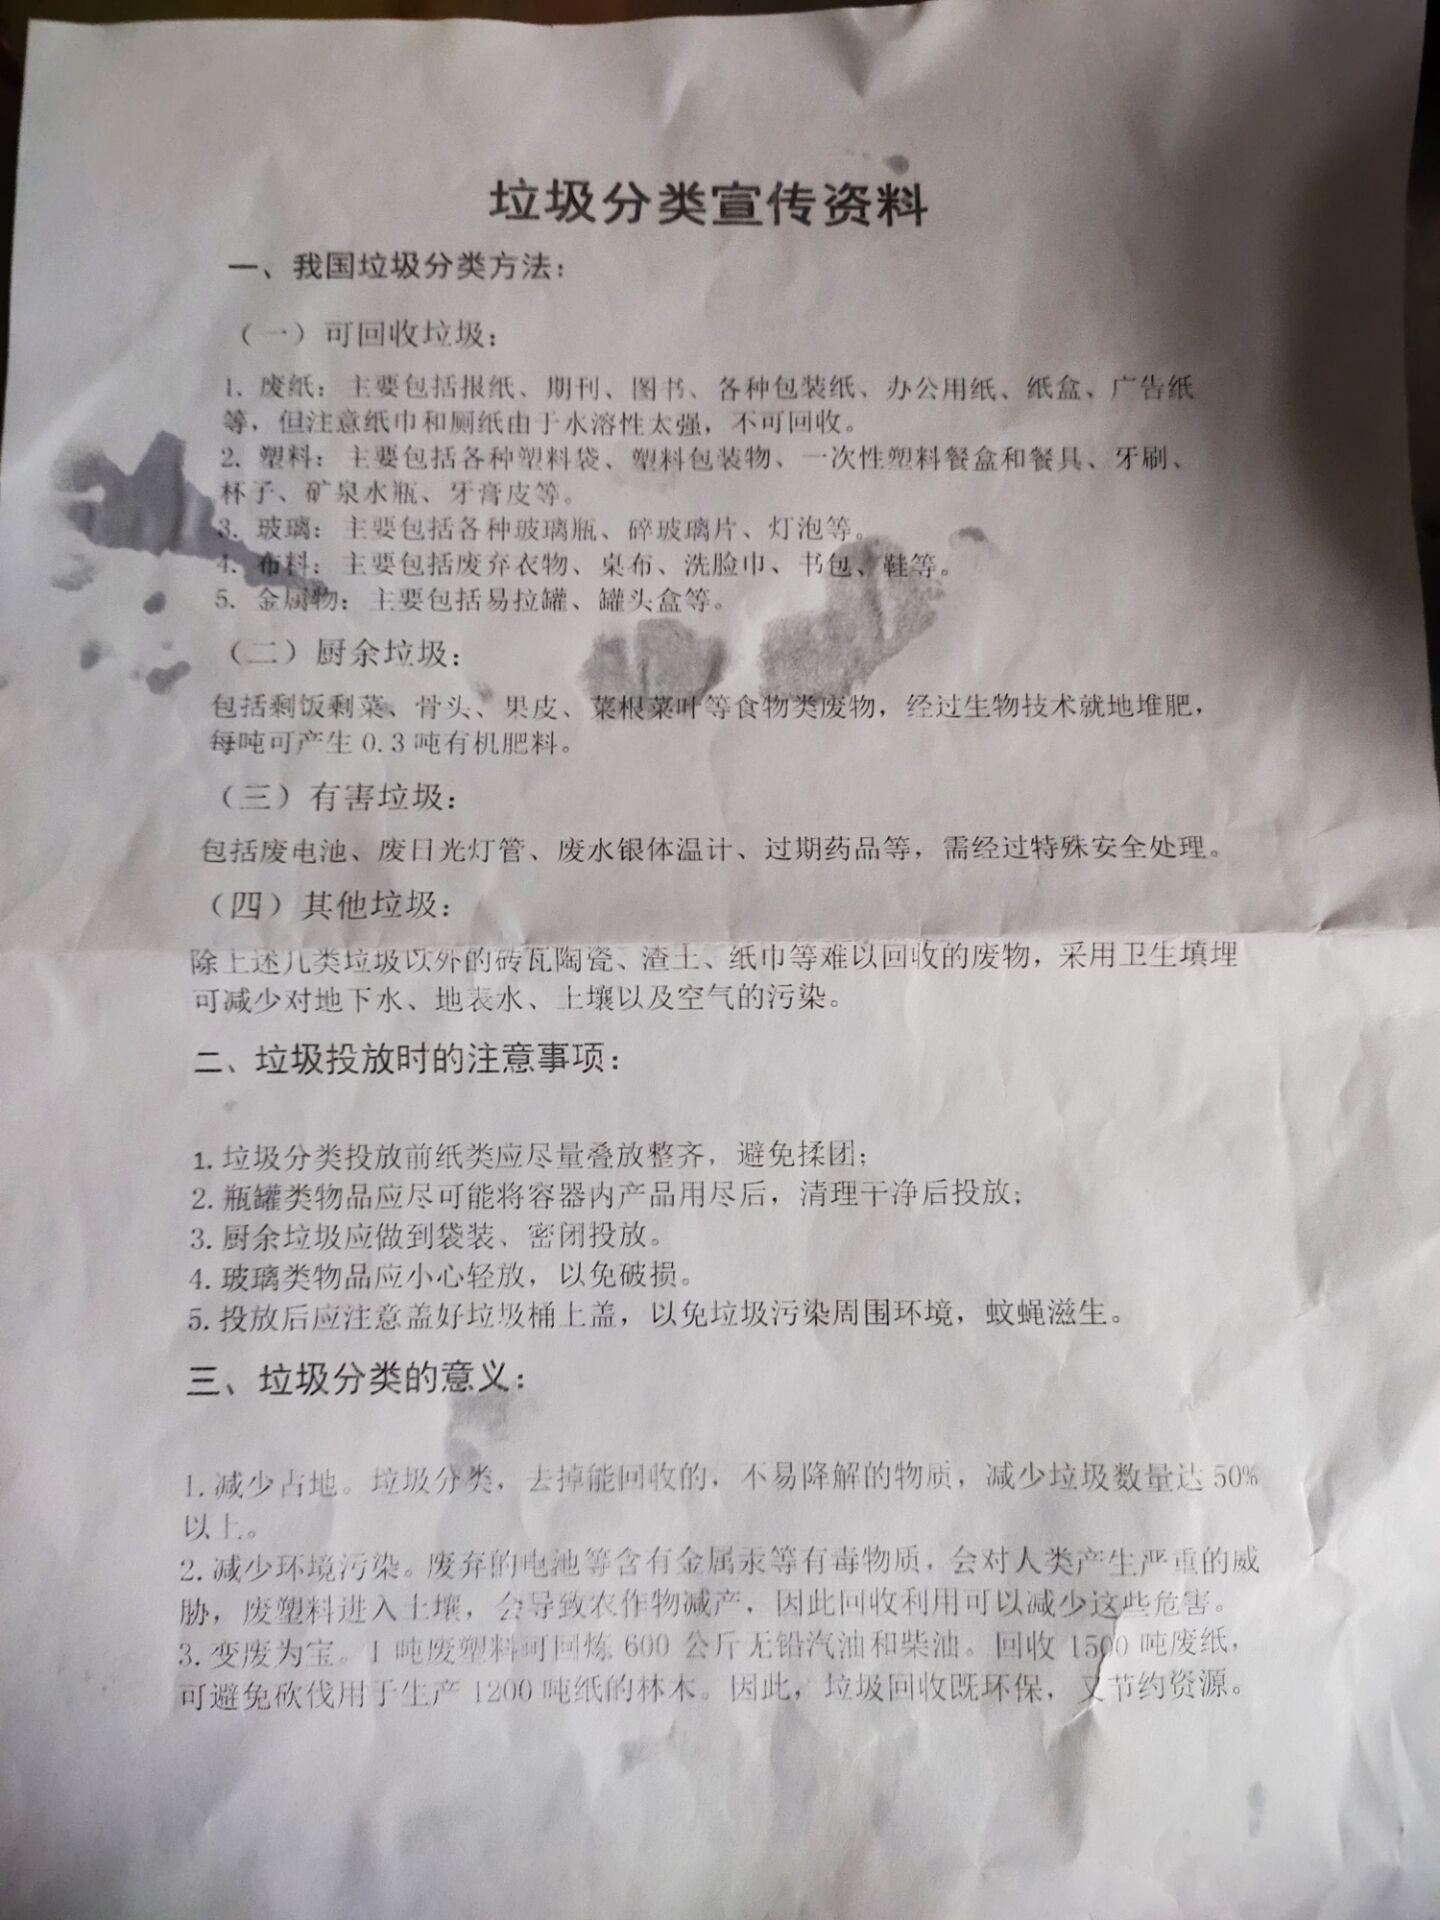 垃圾分类宣传资料
一、我国垃圾分类方法：
（一）可回收垃圾：
1. 废纸：主要包括报纸、期刊、图书、各种包装纸、办公用纸、纸盒、广告纸
等，但注意纸巾和厕纸由于水溶性太强，不可回收。
2. 塑料：主要包括各种塑料袋、塑料包装物、一次性塑料餐盒和餐具、牙刷、
杯子、矿泉水瓶、牙膏皮等。
3. 玻璃：主要包括各种玻璃瓶、碎玻璃片、灯泡等。
4. 布料：主要包括废弃衣物、桌布、洗脸巾、书包、鞋等。
5. 金属物：主要包括易拉罐、罐头盒等。
（二）厨余垃圾：
包括剩饭剩菜、骨头、果皮、菜根菜叶等食物类废物，经过生物技术就地堆肥，
每吨可产生 0.3 吨有机肥料。
（三）有害垃圾：
包括废电池、废日光灯管、废水银体温计、过期药品等，需经过特殊安全处理。
（四）其他垃圾：
除上述几类垃圾以外的砖瓦陶瓷、渣土、纸巾等难以回收的废物，采用卫生填埋
可减少对地下水、地表水、土壤以及空气的污染。
二、垃圾投放时的注意事项：
1. 垃圾分类投放前纸类应尽量叠放整齐，避免揉团；
2. 瓶罐类物品应尽可能将容器内产品用尽后，清理干净后投放；
3. 厨余垃圾应做到袋装、密闭投放。
4. 玻璃类物品应小心轻放，以免破损。
5. 投放后应注意盖好垃圾桶上盖，以免垃圾污染周围环境，蚊蝇滋生。
三、垃圾分类的意义：
1. 减少占地。垃圾分类，去掉能回收的，不易降解的物质，减少垃圾数量达 50%
以上。
2. 减少环境污染。废弃的电池等含有金属汞等有毒物质，会对人类产生严重的威
胁，废塑料进入土壤，会导致农作物减产，因此回收利用可以减少这些危害。
3. 变废为宝。1 吨废塑料可回炼 600 公斤无铅汽油和柴油。回收 1500 吨废纸，
可避免砍伐用于生产 1200 吨纸的林木。因此，垃圾回收既环保，又节约资源。